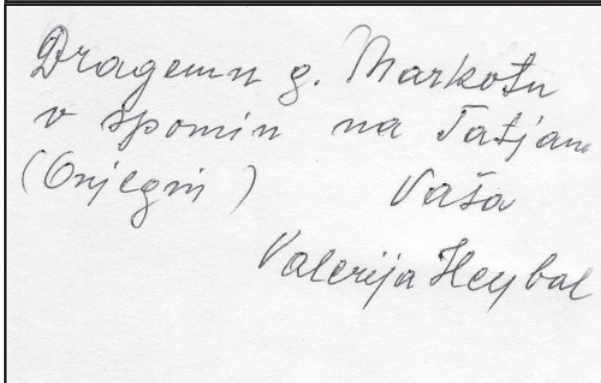 Dragemu g. Markotu
v spomin na Tatjano
(Onjegin) Vaša
Valerija Heybal